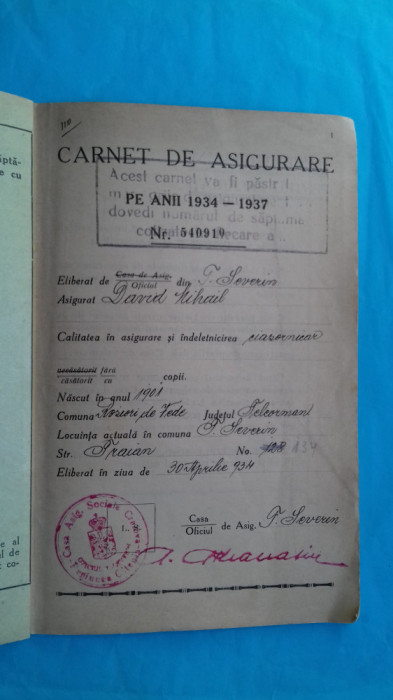 110
1
CARNET DE ASIGURARE
Acest carnet va fi păstr
PE ANII 1934 — 1937
dovedi numărul de săptăm
Nr. 540919
Eliberat de Casa de Asig. / Oficiul din T. Severin
Asigurat David Mihail
Calitatea în asigurare și îndeletnicirea ceasornicar
necăsătorit fără / căsătorit cu copii.
Născut în anul 1901
Comuna Roșiori de Vede Județul Teleorman
Locuința actuală în comuna T. Severin
Str. Traian No. 134
Eliberat în ziua de 30 Aprilie 934
Casa / Oficiul de Asig. T. Severin
Casa Asig. Sociale Craiova
ptă-
e cu
e al
l de
co-